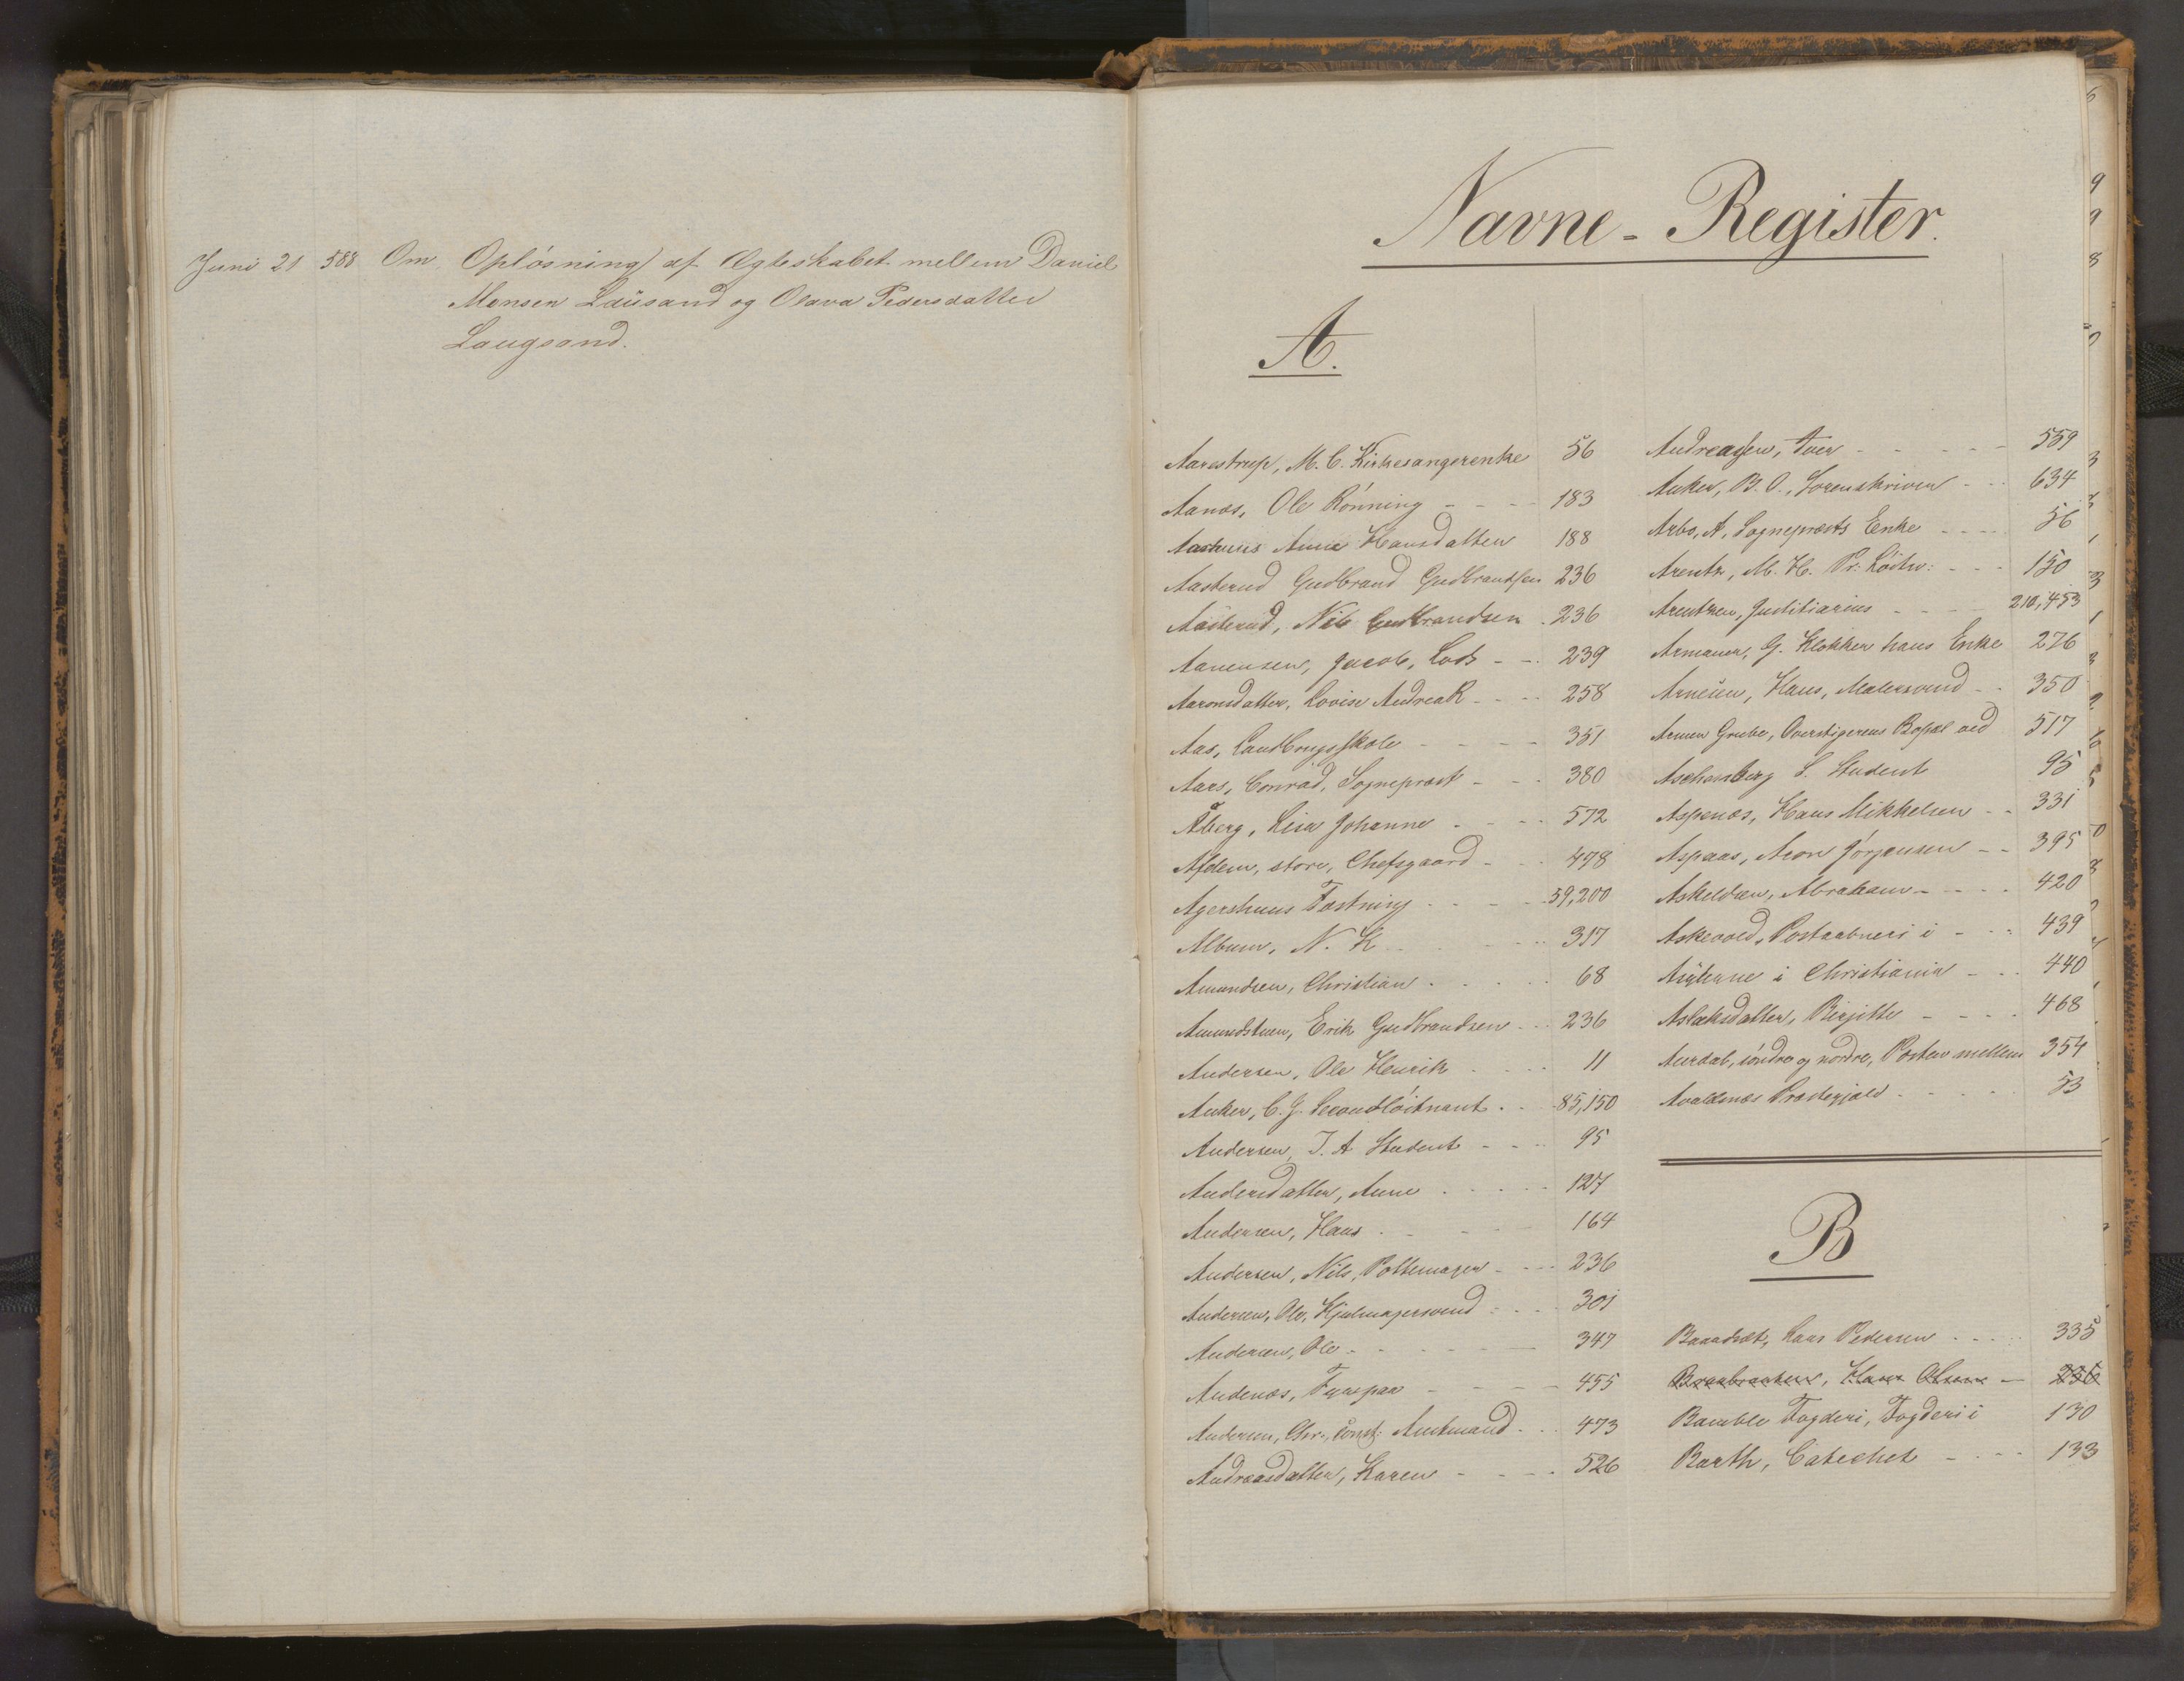 Juni 21 588 Om Opløsning af Ægteskabet mellem Daniel
Monsen Lausand og Olava Pedersdatter
Laugsand.
Navne-Register.
A.
Aarestrup, M. C. Kirkesangerenke 56
Aanæs, Ole Rönning - - - 183
Aashuus Anne Hansdatter 188
Aasterud Gudbrand Gudbrandsen 236
Aasterud, Nils Gudbrandsen . 236
Aanensen, Jacob, Lods - - . 239
Aaronsdatter, Lovise Andrea R. - - - 258
Aas, Landbrugsskole - - - - 351
Aars, Conrad, Sognepræst - - - 380
Åberg, Lisa Johanne - - - - 572
Afdem, store, Chefsgaard - - - 478
Agershuus Fæstning - - - - 59,200
Album, N. K - - - 317
Amundsen, Christian . . . . . 68
Amundstuen, Erik Gudbrandsen - - 236
Andersen, Ole Henrik . . . . 11
Anker, C. J. Secondlöitnant . . 85,150
Andersen, J. A Student - - - 95
Andersdatter, Anne . . . . . 127
Andersen, Hans . - - - 164
Andersen, Nils, Pottemager - - - 236
Andersen, Ole, Hjulmagersvend : . . . 301
Andersen, Ole - - - - - 347
Andenæs, Fyr paa - - - - 455
Andersen, Chr., const: Amtmand - . . 473
Andreasdatter, Karen - - - - 526
Andreasen, Iver - - - - - 559
Anker, B. O., Sorenskriver - - - 634
Arbo, A, Sognepræsts Enke - - - - 56
Arentz, M. H. Pr: Löitn: - - - 150
Arentzen, Justitiarius - - - - 210,453
Armauer, G. Klokker hans Enke 276
Arnesen, Hans, Malersvend - - 350
Arnen Grube, Overstigerens Bopæl ved 517
Aschenberg S. Student 95
Aspenæs, Hans Mikkelsen - - 331
Aspaas, Aron Jörgensen - - 395
Askeldsen, Abraham - - - - 420
Askevold, Postaabneri i - - - 439
Asylerne i Christiania - - - 440
Aslaksdatter, Birgitte - - - - 468
Aurdal, söndre og nordre, Posten mellem 354
Avaldsnæs Præstegjæld - - - - 53
B
Baardsæt, Lars Pedersen - - - . 335
Braabraaten, Hans Olsen - 236
Bamble Fogderi, Fogderi i 130
Barth, Catechet - - - 133